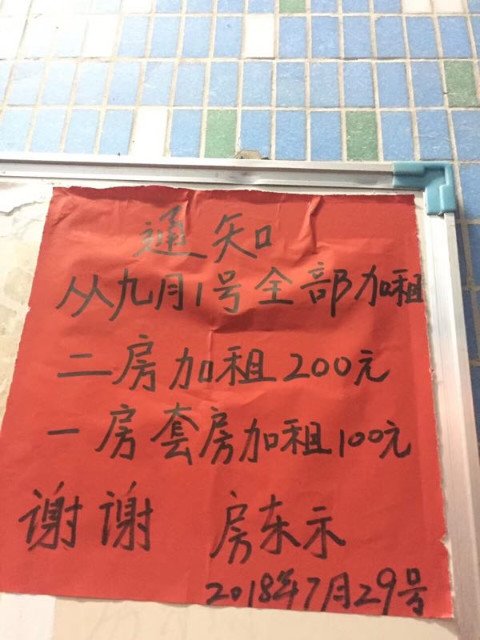 通知
从九月1号全部加租
二房加租200元
一房套房加租100元
谢谢 房东示
2018年7月29号